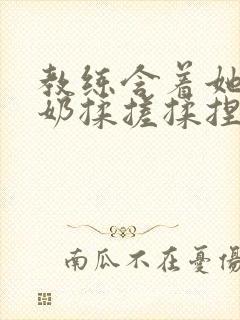 教练含着她
奶揉搓揉捏
南瓜不在憂傷